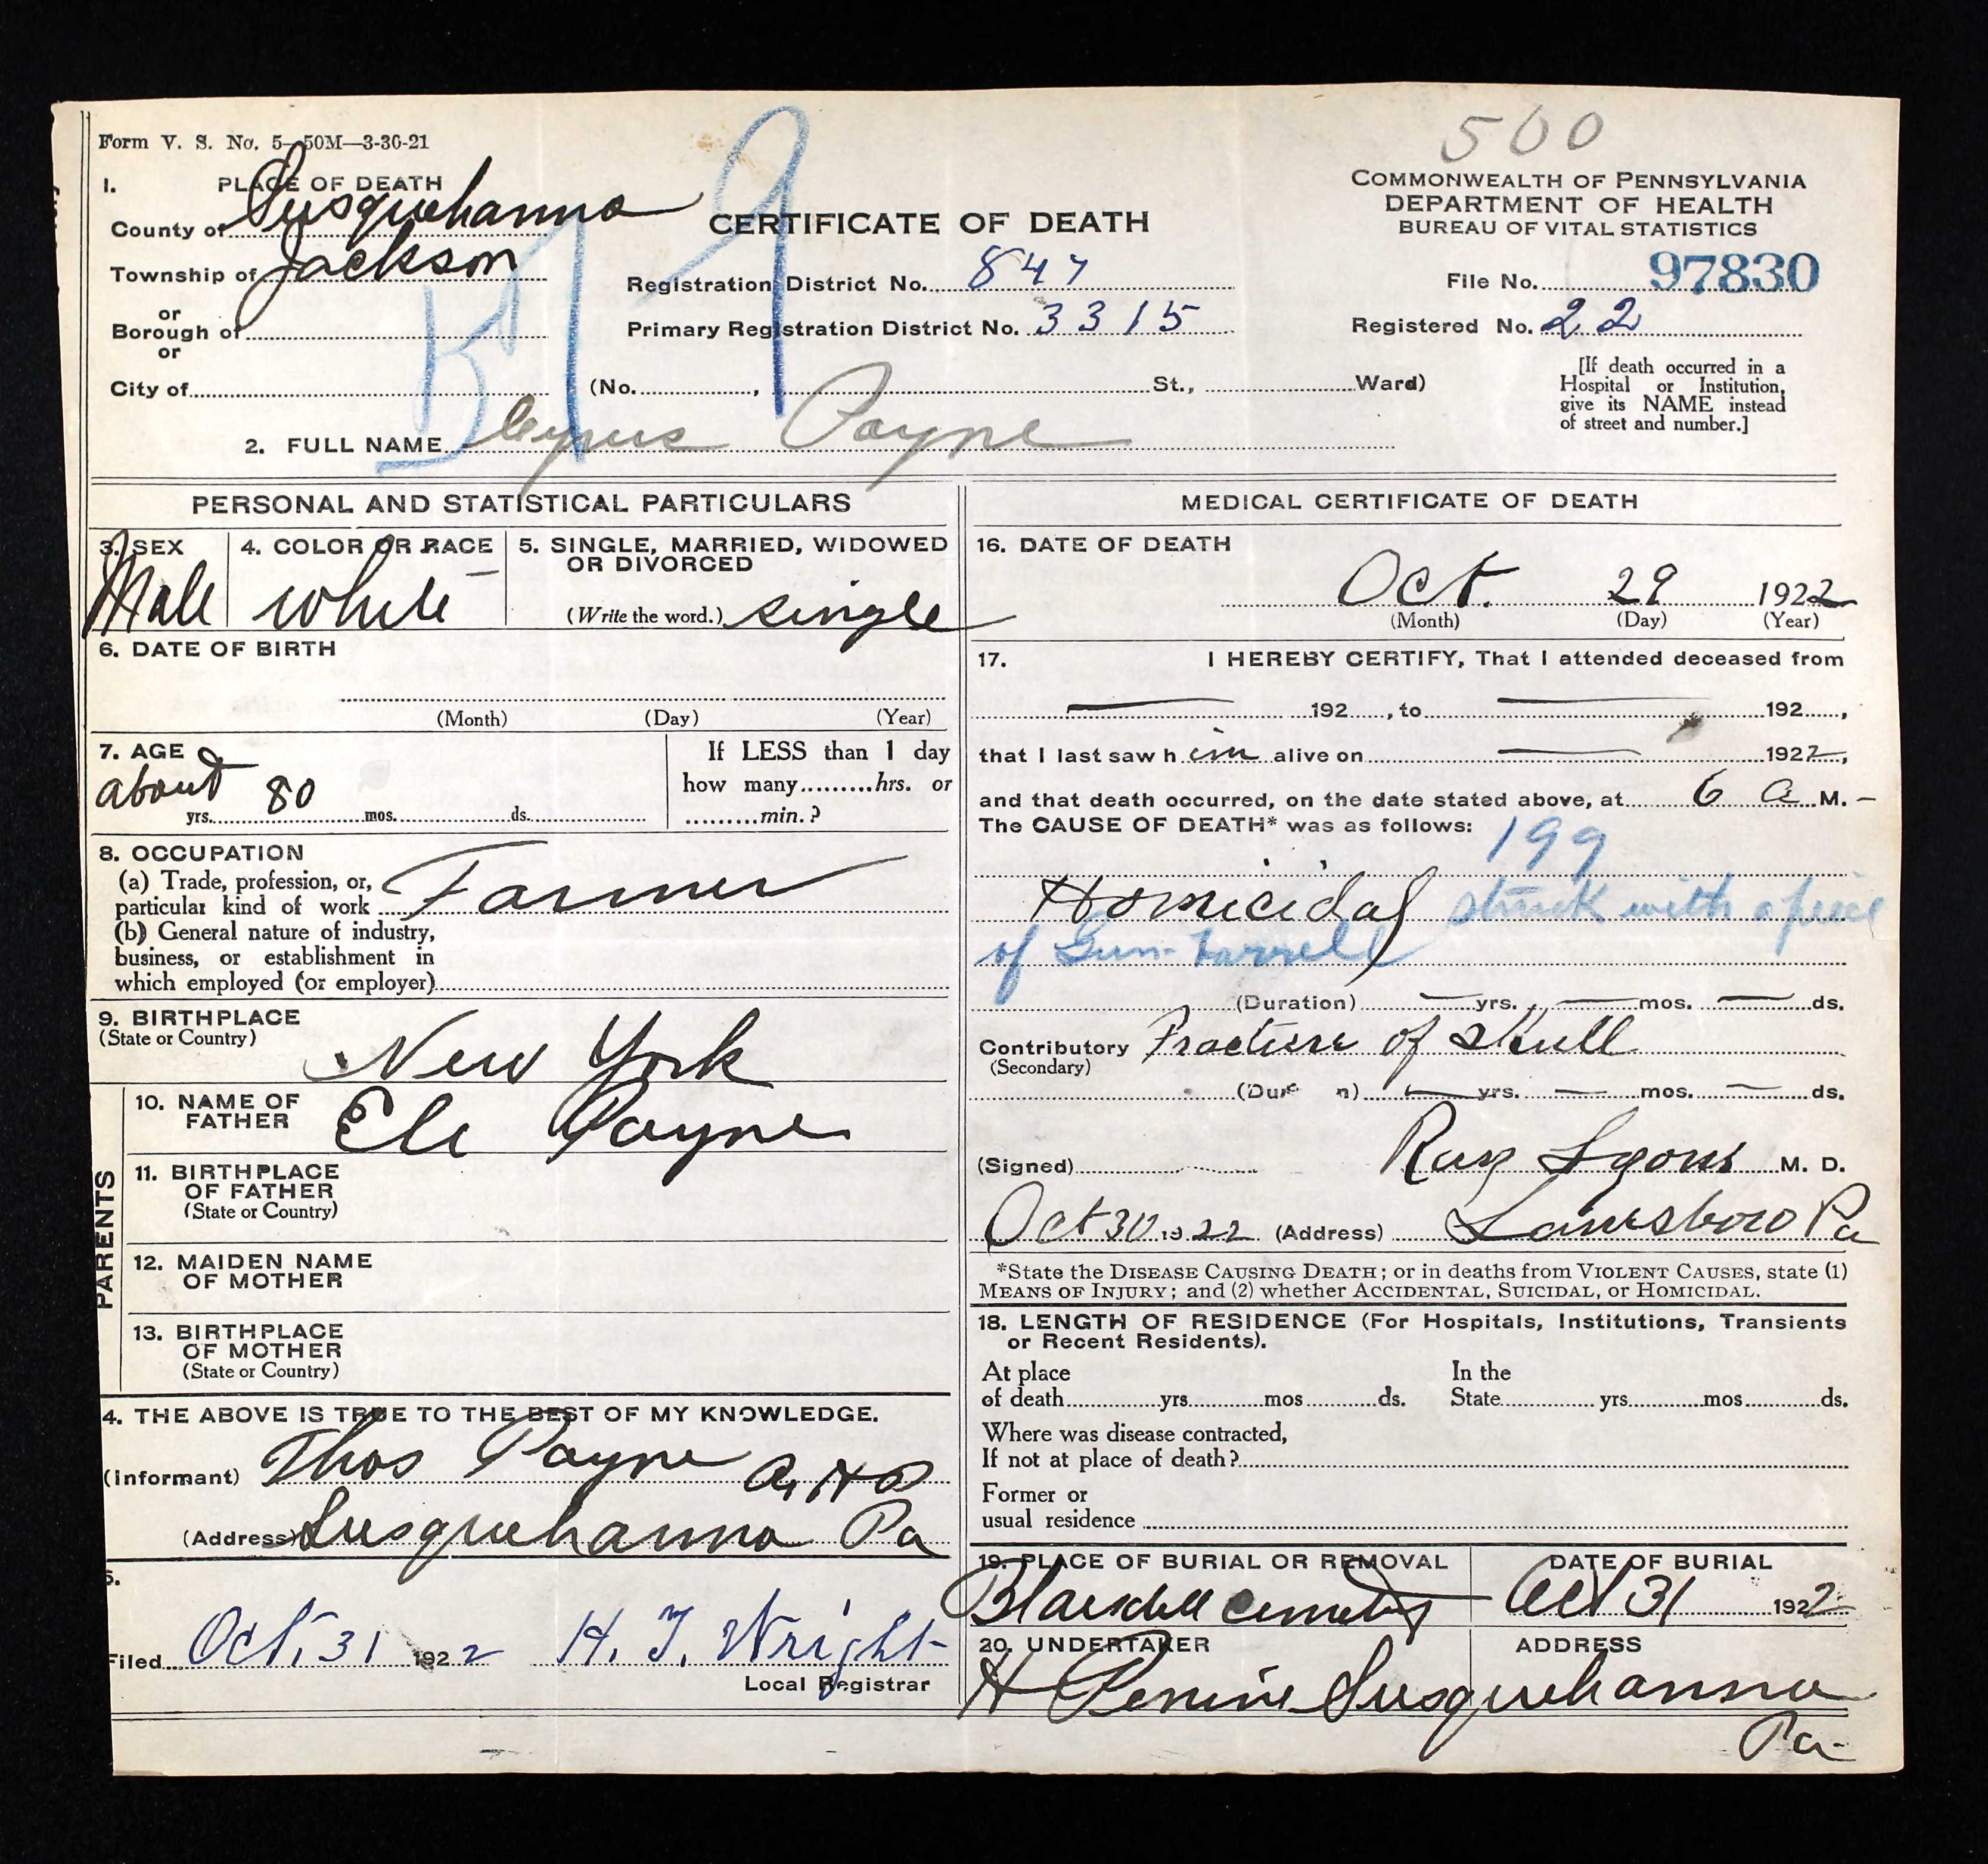 500
Form V. S. No. 5—50M—3-30-21
COMMONWEALTH OF PENNSYLVANIA
DEPARTMENT OF HEALTH
BUREAU OF VITAL STATISTICS
CERTIFICATE OF DEATH
1. PLACE OF DEATH
County of Susquehanna
Township of Jackson
or
Borough of
or
City of
Registration District No. 847
Primary Registration District No. 3315
File No. 97830
Registered No. 22
(No. , St., Ward)
[If death occurred in a
Hospital or Institution,
give its NAME instead
of street and number.]
2. FULL NAME Cyrus Payne
PERSONAL AND STATISTICAL PARTICULARS
3. SEX
Male
4. COLOR OR RACE
white
5. SINGLE, MARRIED, WIDOWED
OR DIVORCED
(Write the word.) single
6. DATE OF BIRTH
(Month) (Day) (Year)
7. AGE
about 80
yrs. mos. ds.
If LESS than 1 day
how many hrs. or
min.?
8. OCCUPATION
(a) Trade, profession, or,
particular kind of work Farmer
(b) General nature of industry,
business, or establishment in
which employed (or employer)
9. BIRTHPLACE
(State or Country)
New York
PARENTS
10. NAME OF
FATHER
Eli Payne
11. BIRTHPLACE
OF FATHER
(State or Country)
12. MAIDEN NAME
OF MOTHER
13. BIRTHPLACE
OF MOTHER
(State or Country)
4. THE ABOVE IS TRUE TO THE BEST OF MY KNOWLEDGE.
(Informant) Thos Payne
(Address) Susquehanna Pa
5.
Filed Oct. 31 1922 H. T. Wright
Local Registrar
MEDICAL CERTIFICATE OF DEATH
16. DATE OF DEATH
Oct. 29 1922
(Month) (Day) (Year)
17. I HEREBY CERTIFY, That I attended deceased from
— 192 , to — 192 ,
that I last saw him alive on — 1922,
and that death occurred, on the date stated above, at 6 a M. —
The CAUSE OF DEATH* was as follows:
199
Homicidal struck with a piece
of Gun-barrell
(Duration) — yrs. — mos. — ds.
Contributory Fracture of Skull
(Secondary)
(Dur n) — yrs. — mos. — ds.
(Signed) Ray Lyons M. D.
Oct 30 1922 (Address) Lanesboro Pa
*State the DISEASE CAUSING DEATH; or in deaths from VIOLENT CAUSES, state (1)
MEANS OF INJURY; and (2) whether ACCIDENTAL, SUICIDAL, or HOMICIDAL.
18. LENGTH OF RESIDENCE (For Hospitals, Institutions, Transients
or Recent Residents).
At place
of death yrs mos ds.
In the
State yrs mos ds.
Where was disease contracted,
If not at place of death?
Former or
usual residence
19. PLACE OF BURIAL OR REMOVAL
Blaisdell cemetery
DATE OF BURIAL
Oct 31 1922
20. UNDERTAKER
H
ADDRESS
Susquehanna
Pa